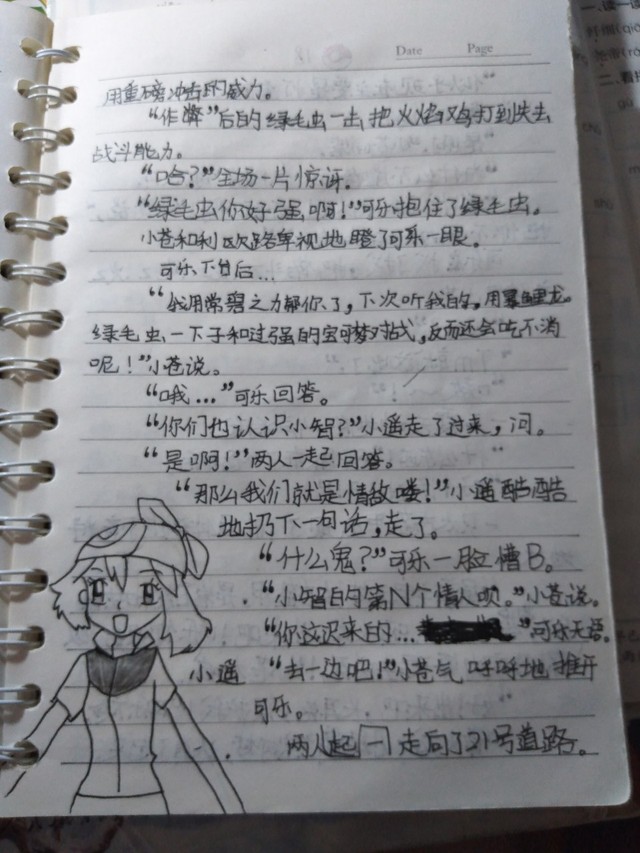 Date Page
用重磅冲击的威力。
“作弊”后的绿毛虫一击把火焰鸡打到失去
战斗能力。
“哈?”全场一片惊讶.
“绿毛虫你好强啊!”可乐抱住了绿毛虫。
小苍和利欧路卑视地瞪了可乐一眼。
可乐下台后...
“我用常磐之力帮你了,下次听我的,用暴鲤龙。
绿毛虫一下子和过强的宝可梦对战,反而还会吃不消
呢!”小苍说。
“哦...”可乐回答。
“你们也认识小智?”小遥走了过来,问。
“是啊!”两人一起回答。
“那么我们就是情敌喽!”小遥酷酷
地扔下一句话,走了。
“什么鬼?”可乐一脸懵B。
“小智的第N个情人呗。”小苍说。
“你这迟来的... ”可乐无语。
小遥 “去一边吧!”小苍气呼呼地推开
可乐。
两人起一走向了21号道路。